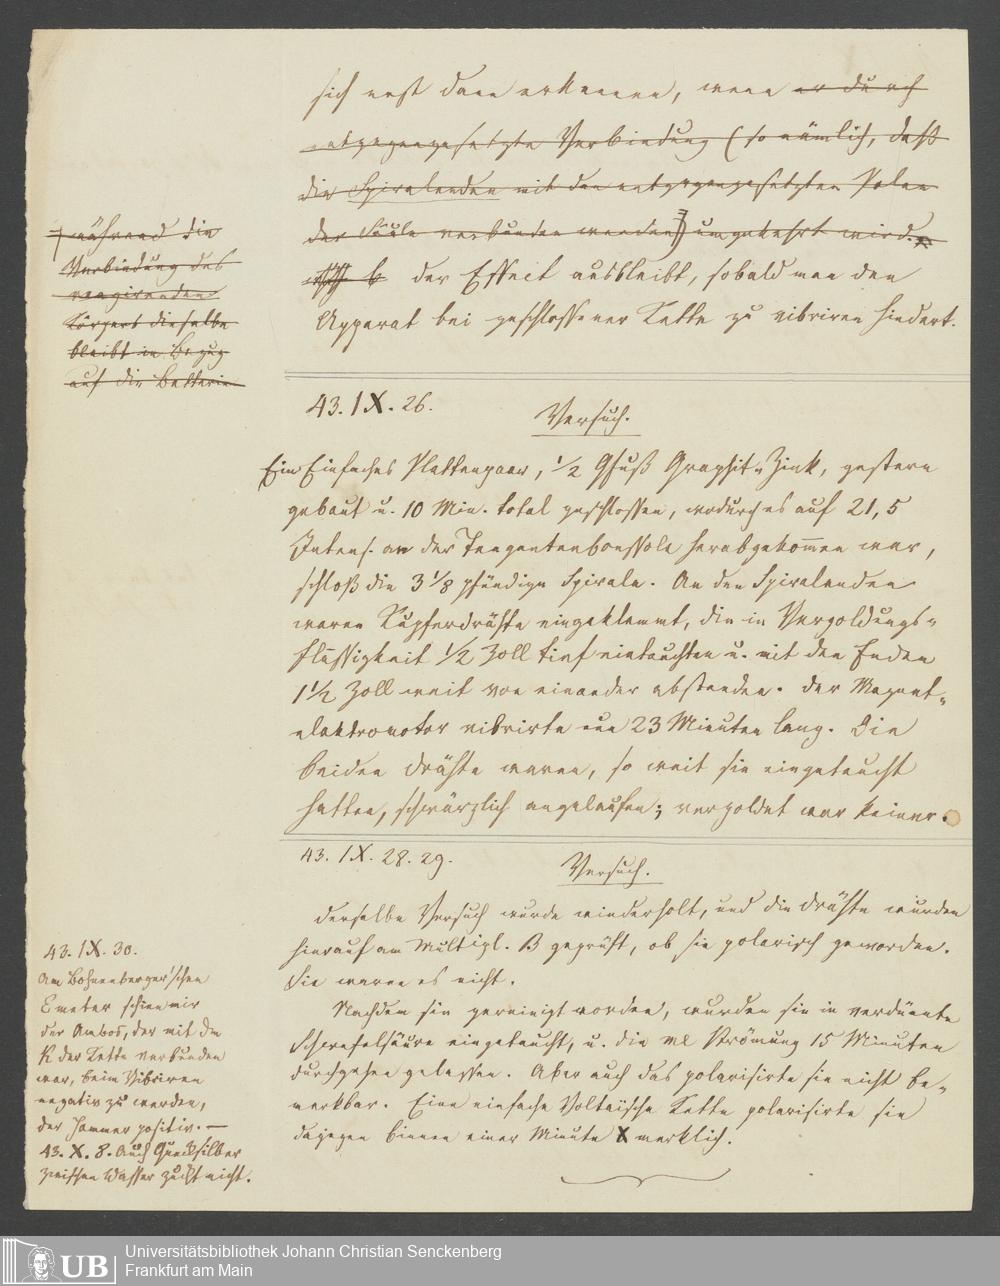 sich erst dann erkennen, wenn er durch
entgegengesetzte Verbindung (so nämlich, daß
die Spiralenden mit den entgegengesetzten Polen
der Säule verbunden werden) umgekehrt wird.
der Effect ausbleibt, sobald man den
Apparat bei geschlossener Kette zu vibriren hindert.
während die
Verbindung des
reagirenden
Körpers dieselbe
bleibt in Bezug
auf die Batterie
43. IX. 26.
Versuch.
Ein Einfaches Plattenpaar, 1/2 Qfuß Graphit u Zink, gestern
gebaut u. 10 Min. total geschlossen, wodurch es auf 21,5
Intens. an der Tangentenboussole herabgekommen war,
schloß die 3 1/8 pfündige Spirale. An den Spiralenden
waren Kupferdrähte eingeklemmt, die in Vergoldungs=
flüssigkeit 1/2 Zoll tief eintauchten u. mit den Enden
1 1/2 Zoll weit von einander abstanden. Der Magnet=
elektromotor vibrirte nun 23 Minuten lang. Die
beiden Drähte waren, so weit sie eingetaucht
hatten, schwärzlich angelaufen; vergoldet war keiner.
43. IX. 28. 29.
Versuch.
Derselbe Versuch wurde wiederholt, und die Drähte wurden
hierauf am Multipl. B geprüft, ob sie polarisch geworden.
Sie waren es nicht.
Nachdem sie gereinigt worden, wurden sie in verdünnte
Schwefelsäure eingetaucht, u. die Strömung 15 Minuten
durchgehen gelassen. Aber auch das polarisirte sie nicht be=
merkbar. Eine einfache Voltaische Kette polarisirte sie
dagegen binnen einer Minute merklich.
43. IX. 30.
Am Bohnenberger'schen
Emeter schien mir
der Ambos, der mit dem
K der Kette verbunden
war, beim Vibriren
negativ zu werden,
der Hammer positiv. —
43. X. 8. Auch Quecksilber
zwischen Wasser zuckt nicht.
UB
Universitätsbibliothek Johann Christian Senckenberg
Frankfurt am Main